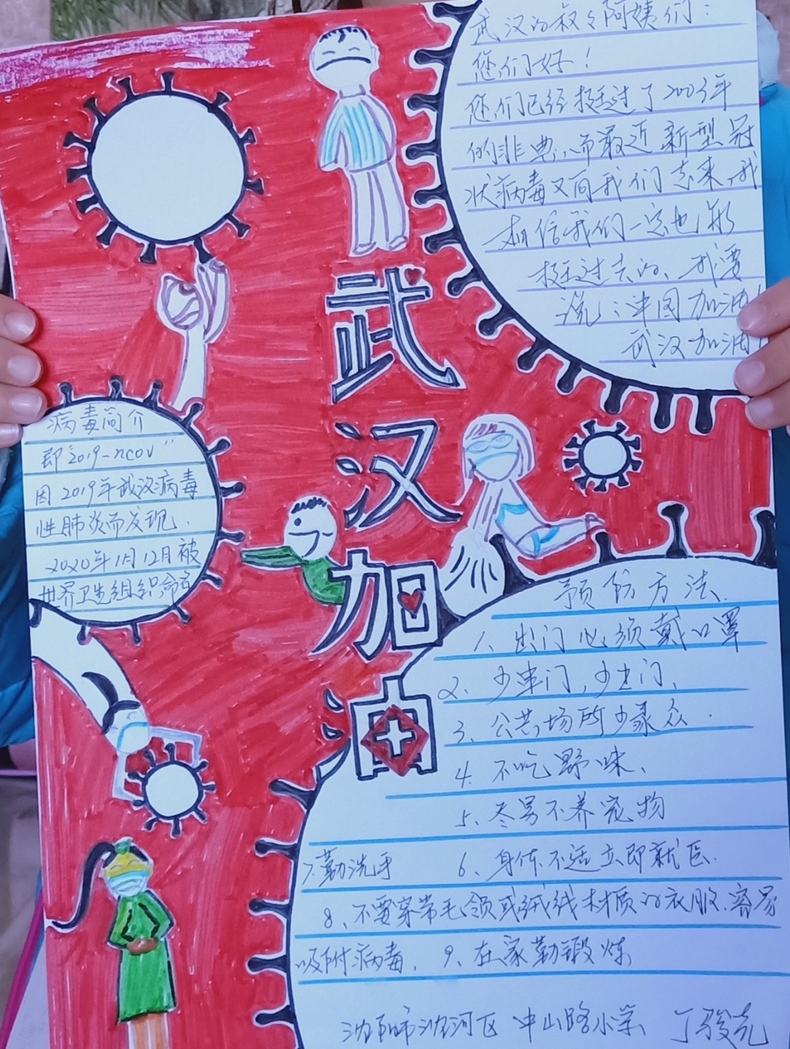 武汉的叔叔阿姨们：
您们好！
您们已经挺过了2003年
的非典，而最近新型冠
状病毒又向我们走来，我
相信我们一定也能
挺过去的、我要
说：中国加油！
武汉加油！
武汉加油
病毒简介
即“2019-ncov”
因2019年武汉病毒
性肺炎而发现、
2020年1月12日被
世界卫生组织命名
预防方法、
1、出门必须戴口罩
2、少串门，少出门、
3、公共场所少聚众．
4、不吃野味、
5、尽量不养宠物
7、勤洗手 6、身体不适立即就医．
8、不要穿带毛领或绒线材质的衣服．容易
吸附病毒．9、在家勤锻炼
沈阳市沈河区 中山路小学